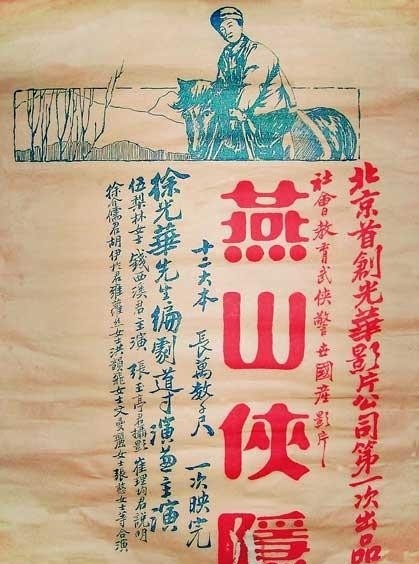 北京首創光華影片公司第一次出品
社會教育武俠警世國產影片
燕山俠隱
十二大本 長萬數千尺 一次映完
徐光華先生編劇導演兼主演
伍梨林女士 錢西溪君主演 張玉亭君攝影 崔理均君說明
徐介儒君 胡伊 君 雅蘿絲女士 洪韻 女士 文曼 女士 張 女士等合演